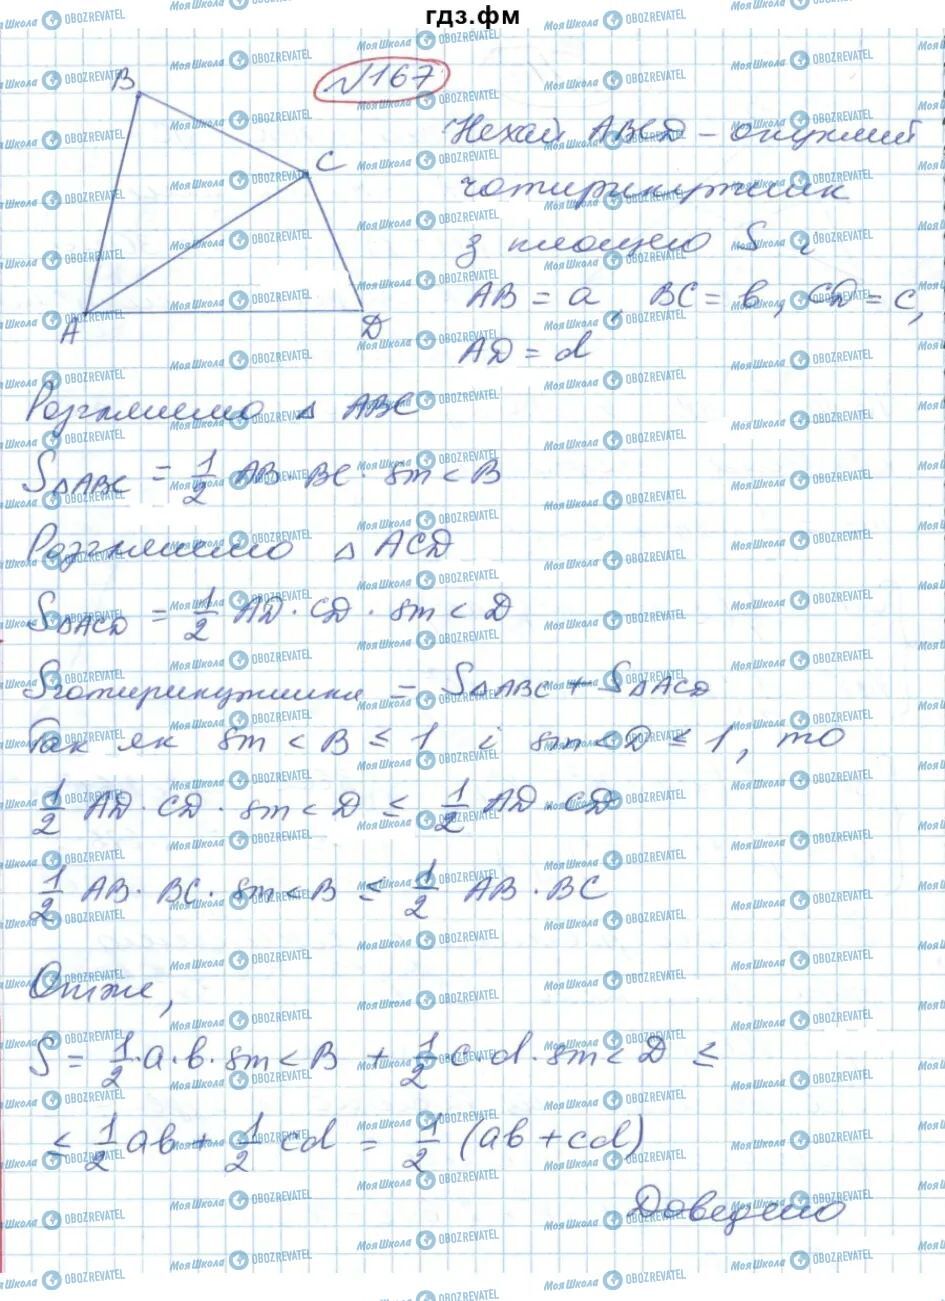 гдз.фм
№167
B
C
A
D
Нехай ABCD – опуклий
чотирикутник
з площею S і
AB = a, BC = b, CD = c,
AD = d
Розглянемо △ ABC
S△ABC = 1/2 AB · BC · sin < B
Розглянемо △ ACD
S△ACD = 1/2 AD · CD · sin < D
Sчотирикутника = S△ABC + S△ACD
Так як sin < B ≤ 1 і sin < D ≤ 1, то
1/2 AD · CD · sin < D ≤ 1/2 AD · CD
1/2 AB · BC · sin < B ≤ 1/2 AB · BC
Отже,
S = 1/2 · a · b · sin < B + 1/2 c · d · sin < D ≤
≤ 1/2 ab + 1/2 cd = 1/2 (ab + cd)
Доведено
МояШкола OBOZREVATEL